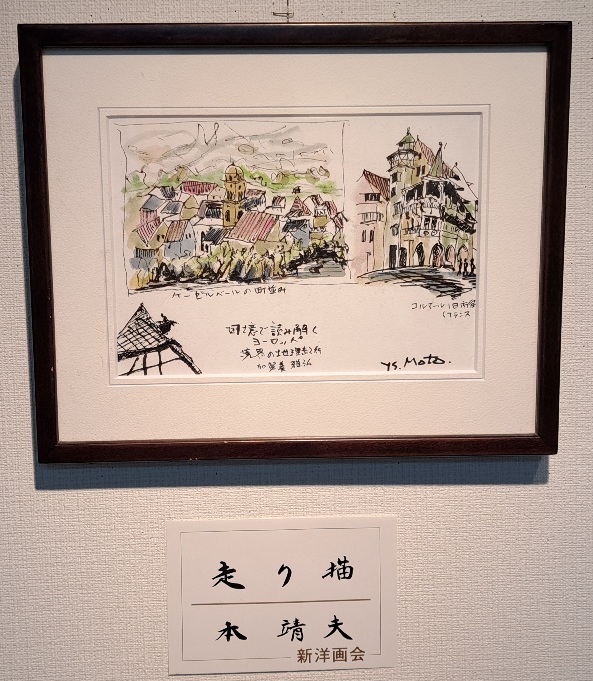 ケーゼルベールの町並
コルマール旧市街
(フランス
国境で読み解く
ヨーロッパ
境界の地理紀行
加賀美 雅弘
Ys. Moto.
走り描
本 靖夫
新洋画会